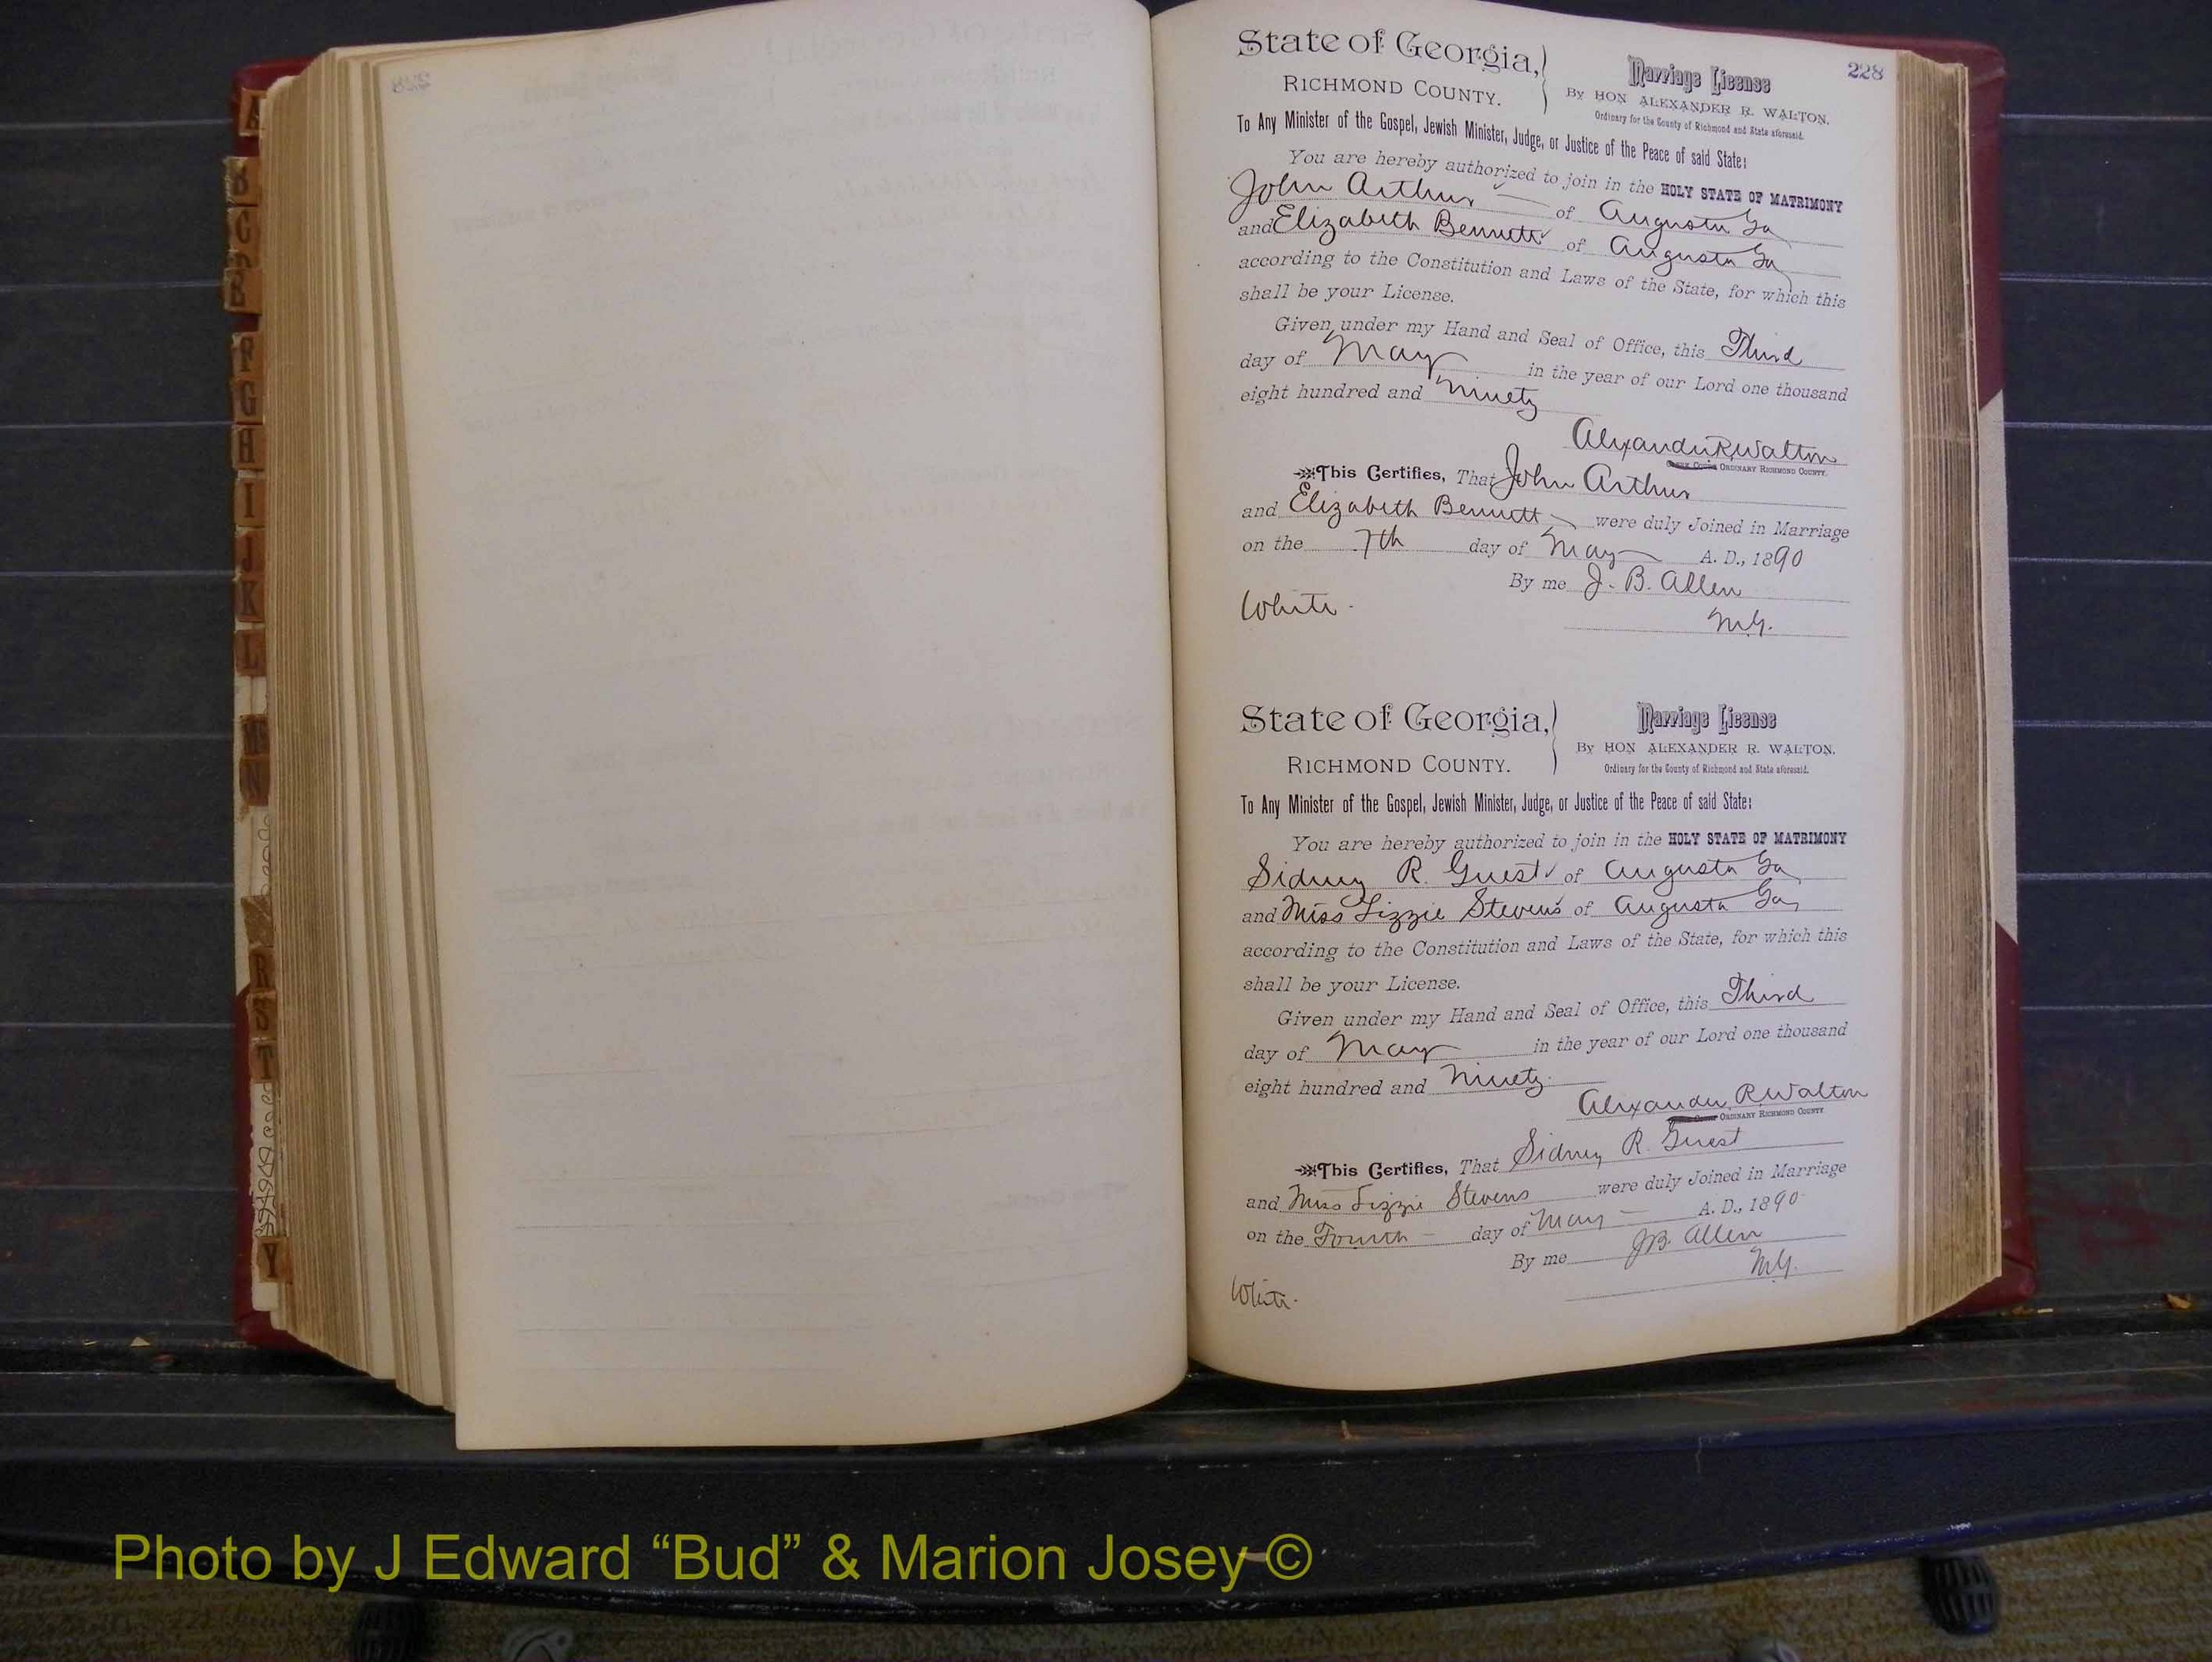 228
State of Georgia,
RICHMOND COUNTY.
Marriage License
By HON ALEXANDER R. WALTON,
Ordinary for the County of Richmond and State aforesaid.
To Any Minister of the Gospel, Jewish Minister, Judge, or Justice of the Peace of said State:
You are hereby authorized to join in the HOLY STATE OF MATRIMONY
John Arthur of Augusta Ga
and Elizabeth Bennett of Augusta Ga
according to the Constitution and Laws of the State, for which this
shall be your License.
Given under my Hand and Seal of Office, this Third
day of May in the year of our Lord one thousand
eight hundred and Ninety
Alexander R. Walton
ORDINARY RICHMOND COUNTY.
This Certifies, That John Arthur
and Elizabeth Bennett were duly Joined in Marriage
on the 7th day of May A. D., 1890
By me J. B. Allen
White. M.G.
State of Georgia,
RICHMOND COUNTY.
Marriage License
By HON ALEXANDER R. WALTON,
Ordinary for the County of Richmond and State aforesaid.
To Any Minister of the Gospel, Jewish Minister, Judge, or Justice of the Peace of said State:
You are hereby authorized to join in the HOLY STATE OF MATRIMONY
Sidney R. Guest of Augusta Ga
and Miss Lizzie Stevens of Augusta Ga,
according to the Constitution and Laws of the State, for which this
shall be your License.
Given under my Hand and Seal of Office, this Third
day of May in the year of our Lord one thousand
eight hundred and Ninety.
Alexander R. Walton
ORDINARY RICHMOND COUNTY.
This Certifies, That Sidney R. Guest
and Miss Lizzie Stevens were duly Joined in Marriage
on the Fourth day of May A. D., 1890
By me J.B. Allen
M.G.
White.
G
H
I
J
K
L
N
R
S
T
Y
Photo by J Edward “Bud” & Marion Josey ©